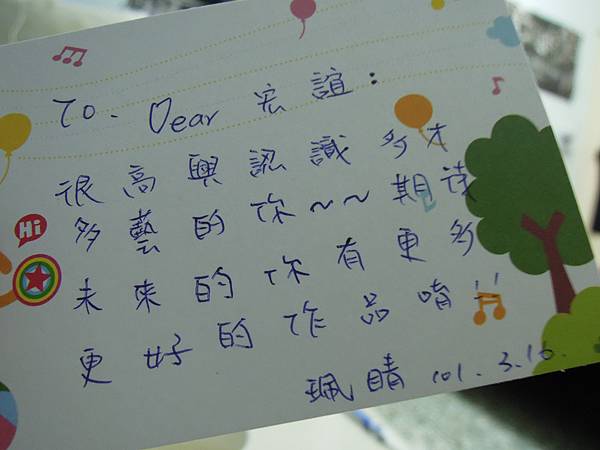 TO. Dear 宏誼:
很高興認識多才
多藝的你~~期待
未來的你有更多
更好的作品唷!!
珮晴 101.3.16.
Hi